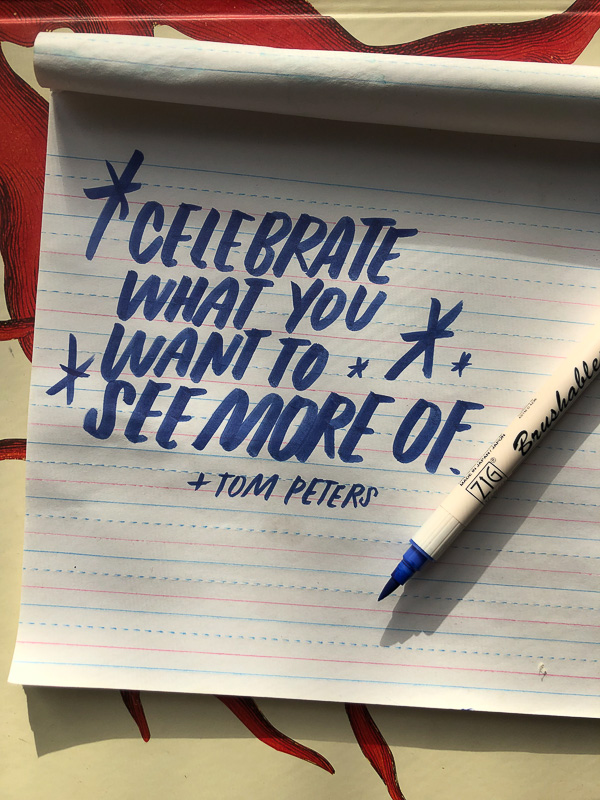 CELEBRATE
WHAT YOU
WANT TO
SEE MORE OF.
+ TOM PETERS
ZIG® Brushables
MADE IN JAPAN